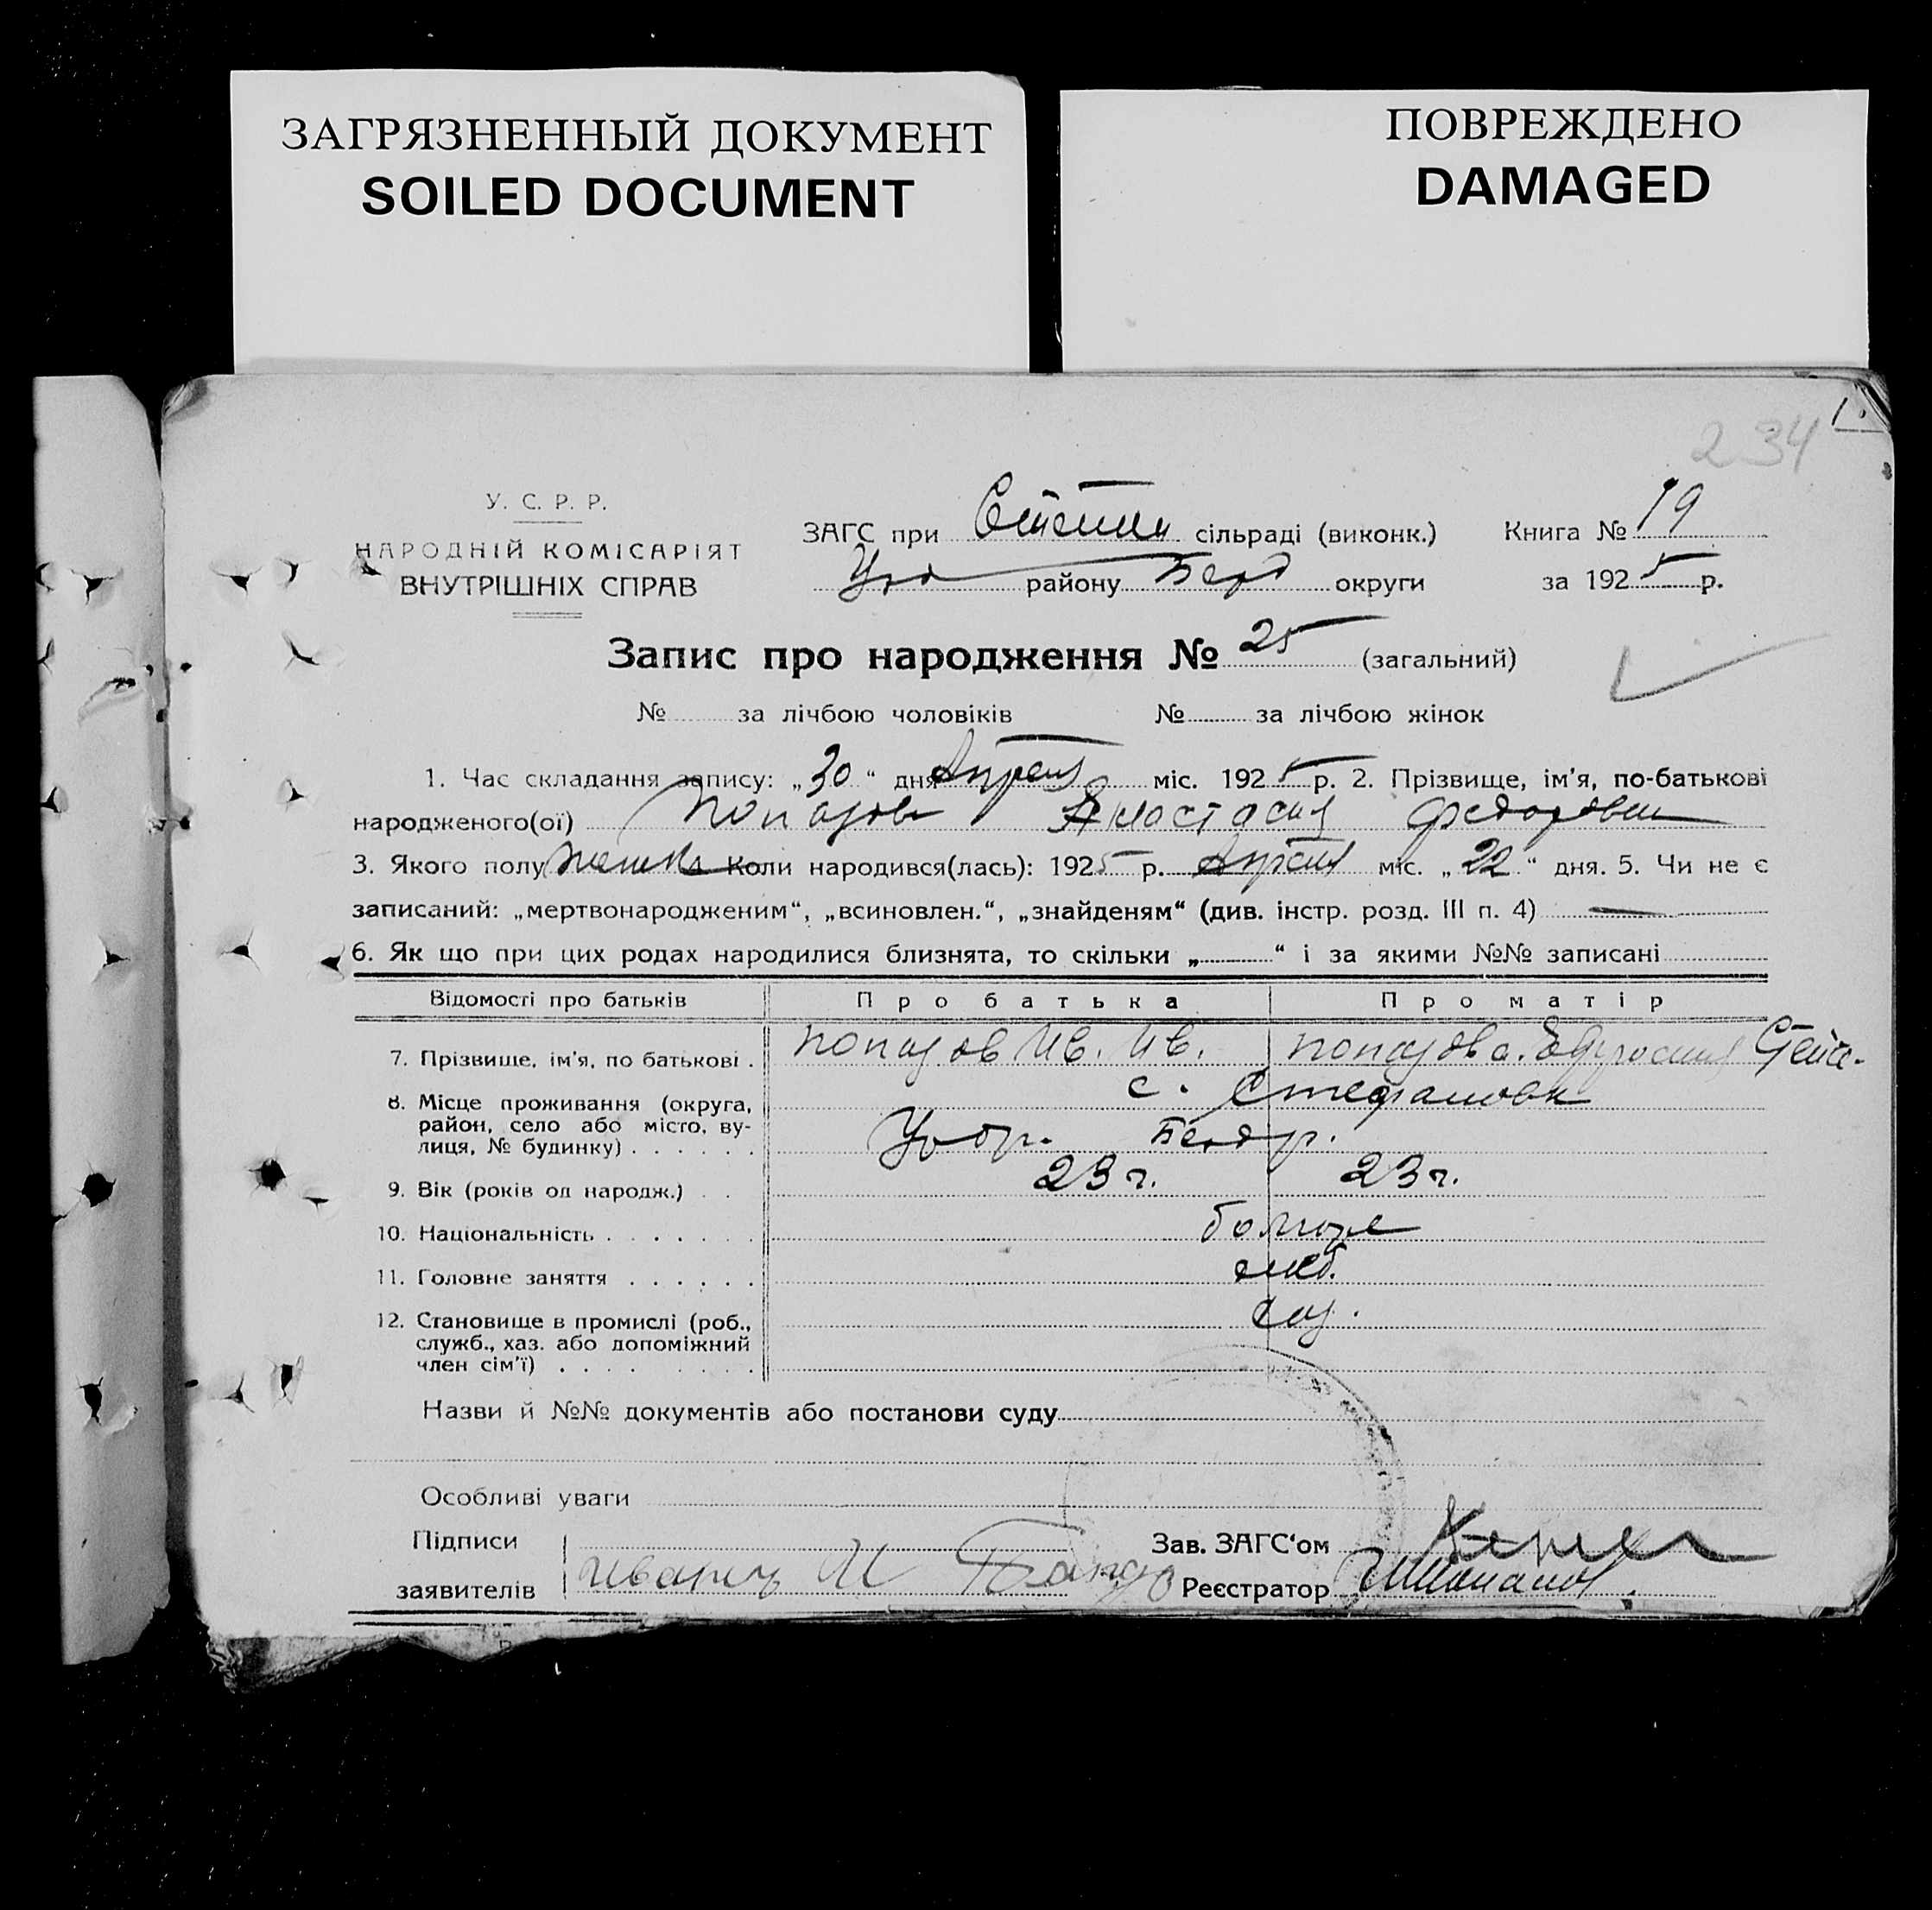 ЗАГРЯЗНЕННЫЙ ДОКУМЕНТ
SOILED DOCUMENT
ПОВРЕЖДЕНО
DAMAGED
234
У. С. Р. Р.
НАРОДНІЙ КОМІСАРІЯТ
ВНУТРІШНІХ СПРАВ
ЗАГС при сільраді (виконк.) Книга № 19
району Берд округи за 1925 р.
Запис про народження № 25 (загальний)
№ за лічбою чоловіків № за лічбою жінок
1. Час складання запису: „30“ дня Апреля міс. 1925 р. 2. Прізвище, ім'я, по-батькові
народженого(ої) Попазов Анастасия Федоровна
3. Якого полу Коли народився(лась): 1925 р. Апреля міс. „22“ дня. 5. Чи не є
записаний: „мертвонародженим“, „всиновлен.“, „знайденям“ (див. інстр. розд. III п. 4) —
6. Як що при цих родах народилися близнята, то скільки „ “ і за якими №№ записані
Відомості про батьків Про батька Про матір
7. Прізвище, ім'я, по батькові . Попазов Ив. Ив. Попазова Степ.
8. Місце проживання (округа, с. Стефановка
район, село або місто, ву-
лиця, № будинку) . . . . . . Бердр.
9. Вік (років од народж.) . . 23 г. 23 г.
10. Національність . . . . . . . болгаре
11. Головне заняття . . . . . .
12. Становище в промислі (роб., хаз.
служб., хаз. або допоміжний
член сім'ї) . . . . . . . .
Назви й №№ документів або постанови суду
Особливі уваги
Підписи Зав. ЗАГС'ом
заявителів И Реєстратор